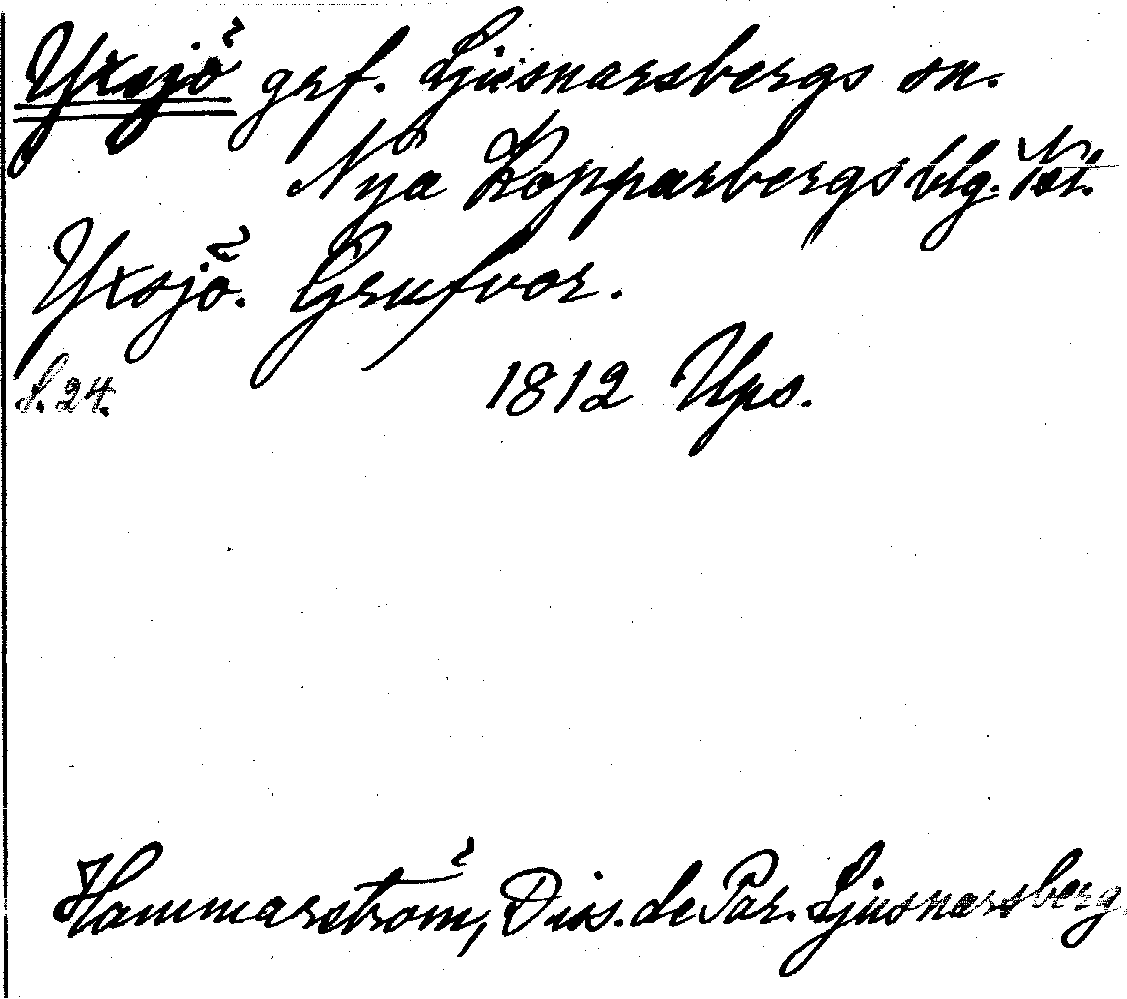 Yxsjö grf. Ljusnarsbergs sn.
Nya Kopparbergs blg. Vst.
Yxsjö. Grufvor.
S. 24. 1812 Ups.
Hammarström, Dis. de Par. Ljusnarsberg.